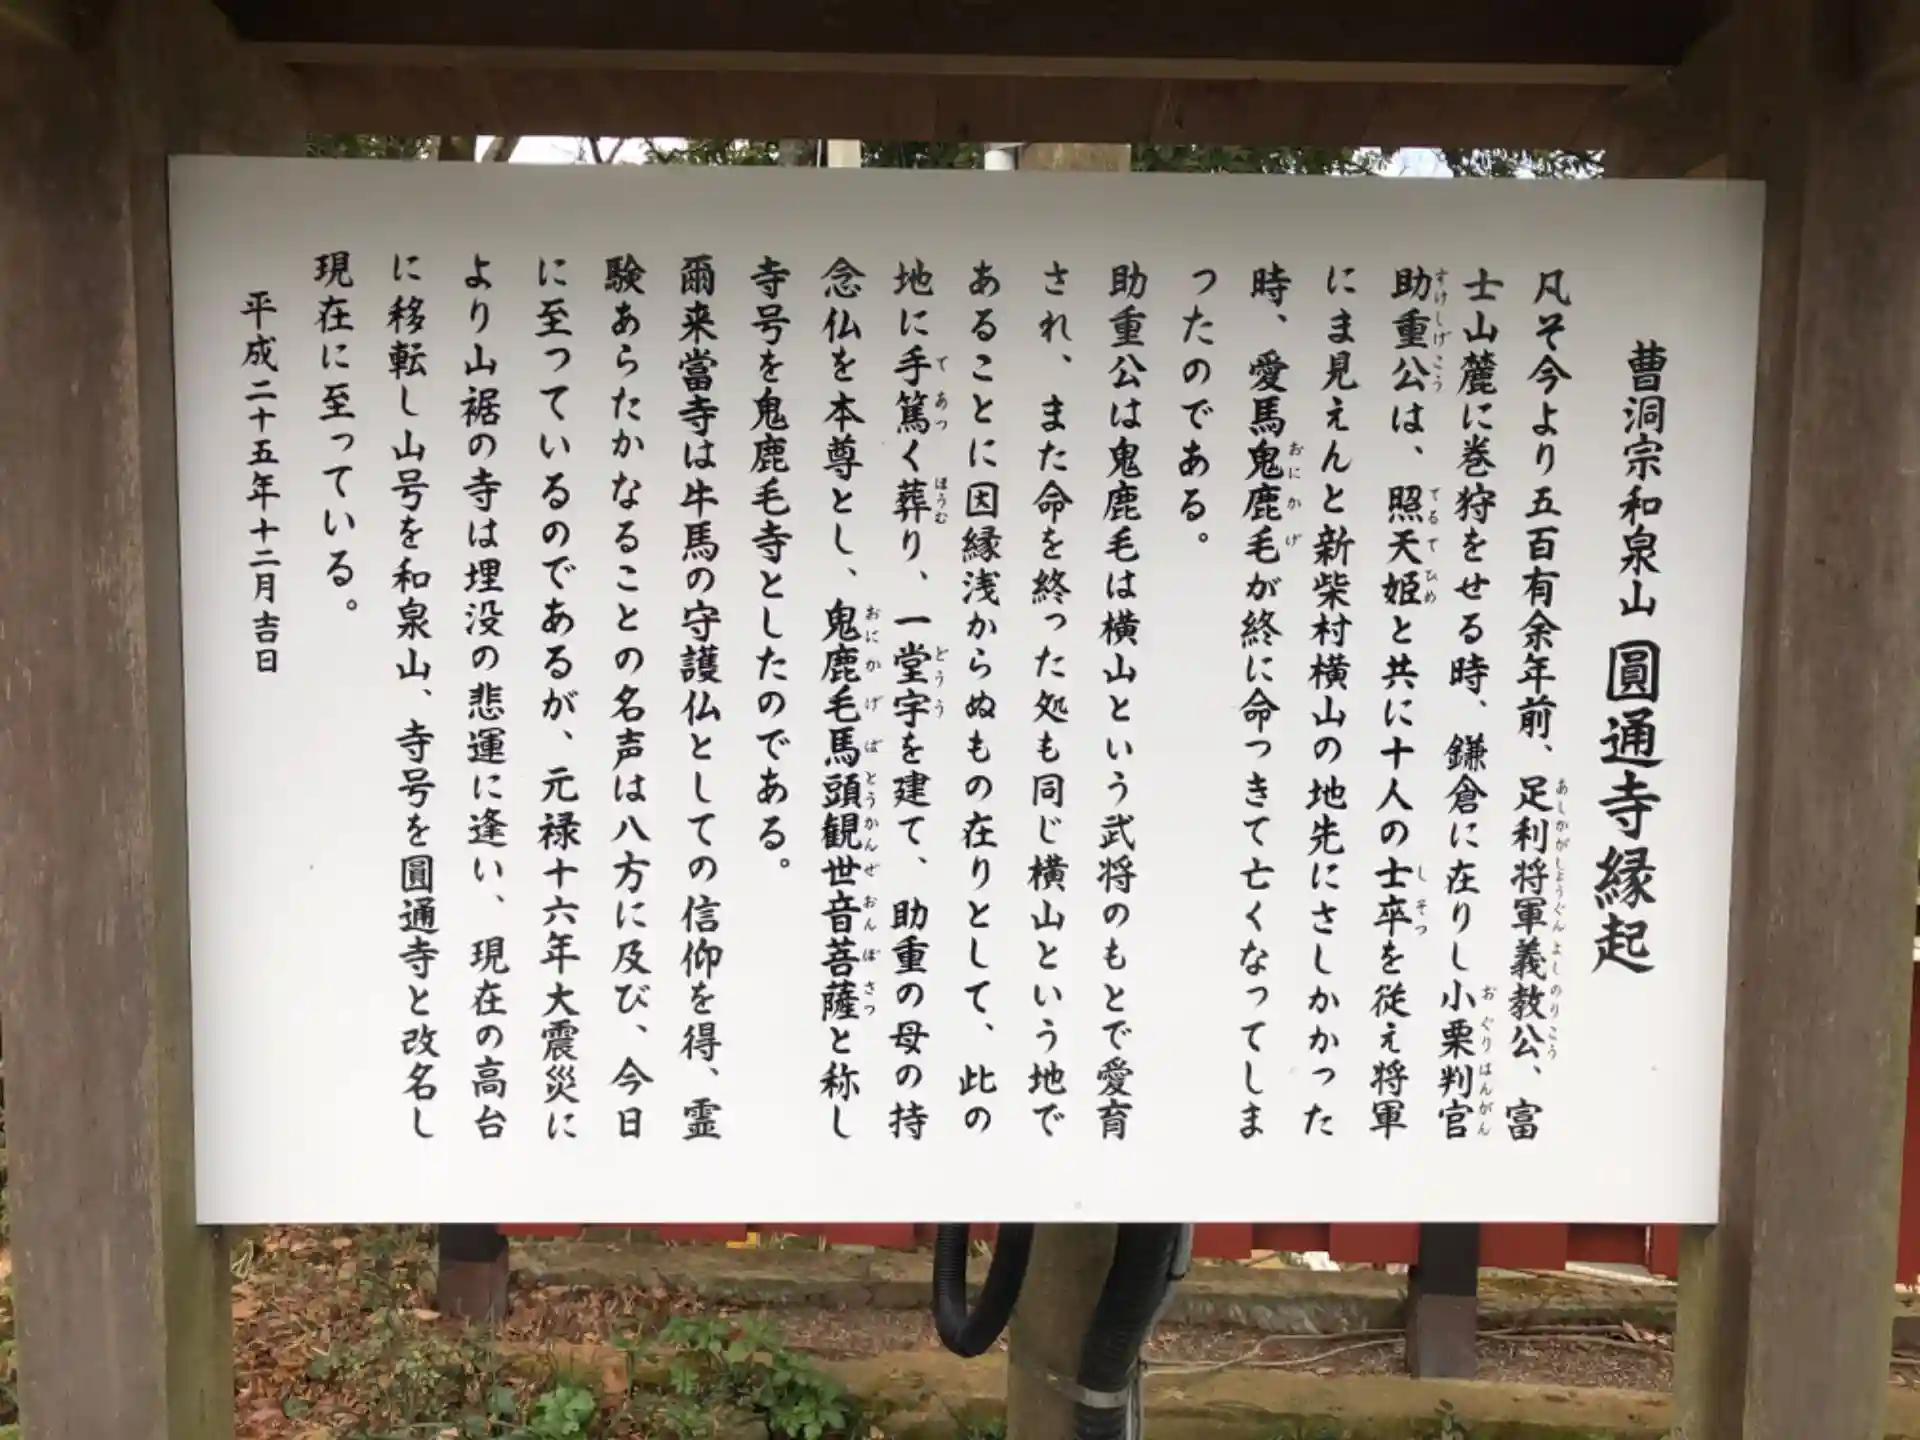 曹洞宗和泉山 圓通寺縁起
凡そ今より五百有余年前、足利将軍義教公、富
士山麓に巻狩をせる時、鎌倉に在りし小栗判官
助重公は、照天姫と共に十人の士卒を従え将軍
にま見えんと新柴村横山の地先にさしかかった
時、愛馬鬼鹿毛が終に命つきて亡くなってしま
ったのである。
助重公は鬼鹿毛は横山という武将のもとで愛育
され、また命を終った処も同じ横山という地で
あることに因縁浅からぬもの在りとして、此の
地に手篤く葬り、一堂宇を建て、助重の母の持
念仏を本尊とし、鬼鹿毛馬頭観世音菩薩と称し
寺号を鬼鹿毛寺としたのである。
爾来當寺は牛馬の守護仏としての信仰を得、霊
験あらたかなることの名声は八方に及び、今日
に至っているのであるが、元禄十六年大震災に
より山裾の寺は埋没の悲運に逢い、現在の高台
に移転し山号を和泉山、寺号を圓通寺と改名し
現在に至っている。
平成二十五年十二月吉日